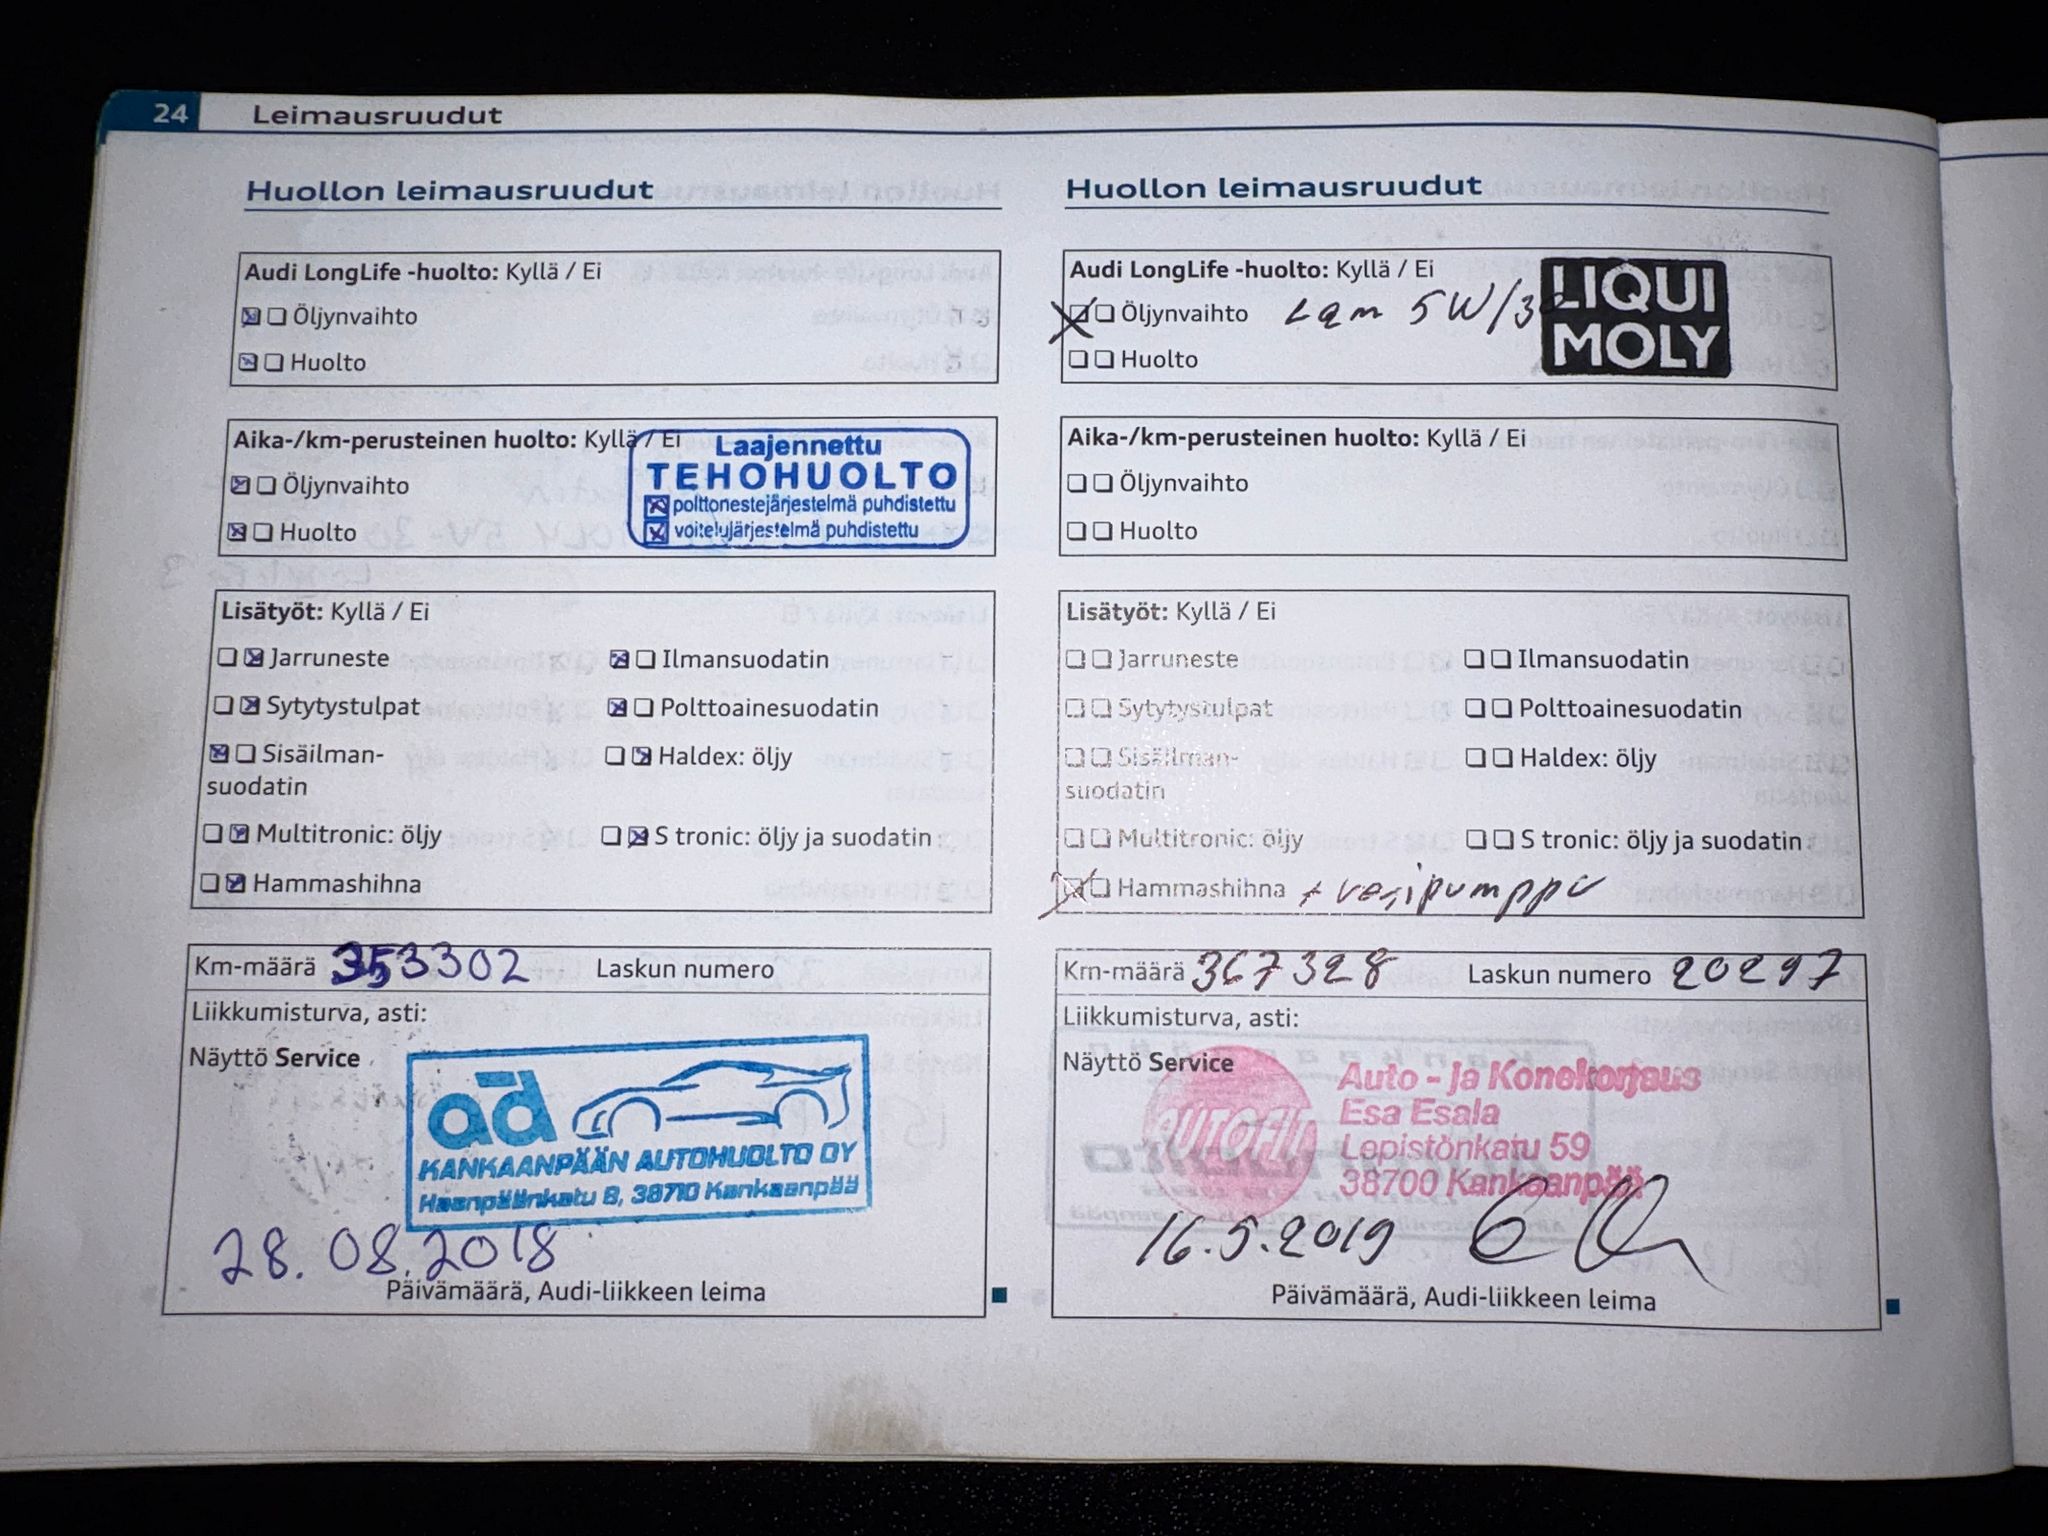 24 Leimausruudut
Huollon leimausruudut
Audi LongLife -huolto: Kyllä / Ei
Öljynvaihto
Huolto
Aika-/km-perusteinen huolto: Kyllä / Ei
Öljynvaihto
Huolto
Laajennettu
TEHOHUOLTO
polttonestejärjestelmä puhdistettu
voitelujärjestelmä puhdistettu
Lisätyöt: Kyllä / Ei
Jarruneste
Ilmansuodatin
Sytytystulpat
Polttoainesuodatin
Sisäilman-
suodatin
Haldex: öljy
Multitronic: öljy
S tronic: öljy ja suodatin
Hammashihna
Km-määrä 353302 Laskun numero
Liikkumisturva, asti:
Näyttö Service
ad
KANKAANPÄÄN AUTOHUOLTO OY
Haapäänkatu 8, 38710 Kankaanpää
28.08.2018
Päivämäärä, Audi-liikkeen leima
Huollon leimausruudut
Audi LongLife -huolto: Kyllä / Ei
Öljynvaihto 5W/30
Huolto
LIQUI
MOLY
Aika-/km-perusteinen huolto: Kyllä / Ei
Öljynvaihto
Huolto
Lisätyöt: Kyllä / Ei
Jarruneste
Ilmansuodatin
Sytytystulpat
Polttoainesuodatin
Sisäilman-
suodatin
Haldex: öljy
Multitronic: öljy
S tronic: öljy ja suodatin
Hammashihna + vesipumppu
Km-määrä 367328 Laskun numero 20297
Liikkumisturva, asti:
Näyttö Service
AUTOFIT
Auto - ja Konekorjaus
Esa Esala
Lopistönkatu 59
38700 Kankaanpää
16.5.2019
Päivämäärä, Audi-liikkeen leima